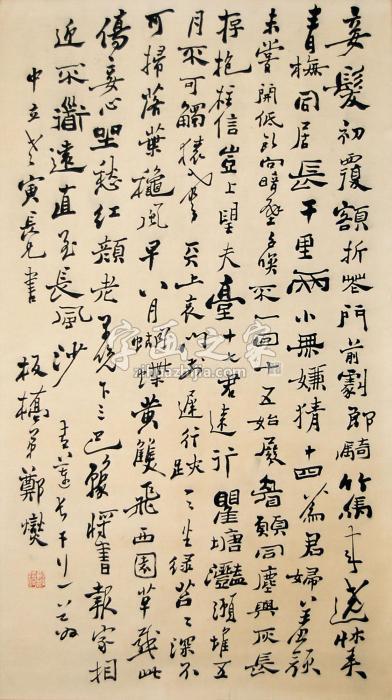 妾髮初覆額折花門前劇郎騎竹馬來遶牀弄
青梅同居長干里兩小無嫌猜十四為君婦羞顏
未嘗開低頭向暗壁千喚不一回十五始展眉願同塵與灰長
存抱柱信豈上望夫臺十七君遠行瞿塘灩澦堆五
月不可觸猿聲天上哀門前遲行跡一一生綠苔苔深不
可掃落葉秋風早八月蝴蝶黃雙飛西園草感此
傷妾心坐愁紅顏老早晚下三巴預將書報家相
近不道遠直至長風沙 長干行一首
中立老寅長兄書 板橋弟鄭燮
字画之家